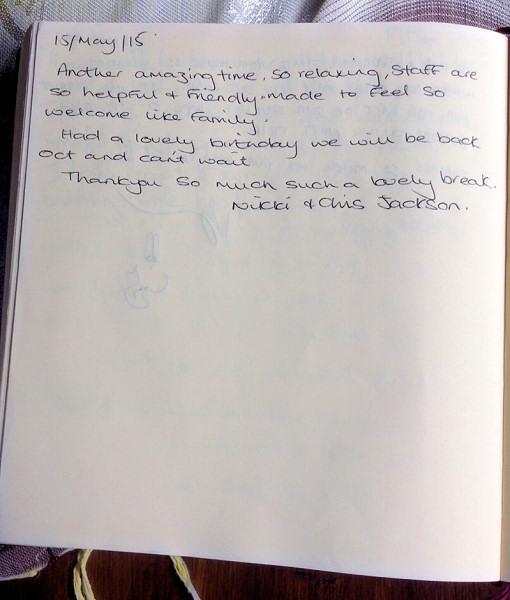 15/May/15
Another amazing time, so relaxing, Staff are
so helpful & friendly. made to feel so
welcome like family.
Had a lovely birthday we will be back
Oct and can't wait
Thankyou so much such a lovely break.
Nikki & Chis Jackson.